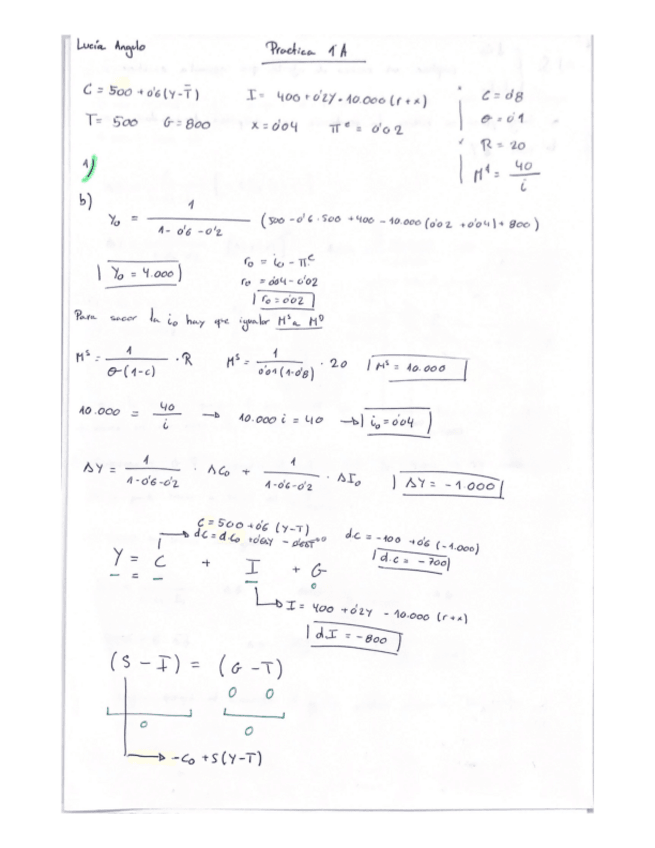 Lucía Angulo Practica 1A
C = 500 + 0'6 (Y - T̄) I = 400 + 0'2Y - 10.000 (r + x) C = 0'8
T = 500 G = 800 x = 0'04 πᵉ = 0'02 θ = 0'1
R = 20
Mᵈ = 40 / i
1)
b)
Y₀ = 1 / (1 - 0'6 - 0'2) (500 - 0'6 · 500 + 400 - 10.000 (0'02 + 0'04) + 800)
Y₀ = 4.000 r₀ = i₀ - πᵉ
r₀ = 0'04 - 0'02
r₀ = 0'02
Para sacar la i₀ hay que igualar Mˢ a Mᴰ
Mˢ = 1 / θ(1-c) · R Mˢ = 1 / 0'01(1-0'8) · 20 Mˢ = 10.000
10.000 = 40 / i → 10.000 i = 40 → i₀ = 0'04
ΔY = 1 / (1-0'6-0'2) · ΔC₀ + 1 / (1-0'6-0'2) · ΔI₀ ΔY = -1.000
C = 500 + 0'6 (Y-T)
dC = dC₀ + 0'6dY - 0'6dT⁼⁰ dc = -100 + 0'6 (-1.000)
d.c = -700
Y = C + I + G
0
I = 400 + 0'2Y - 10.000 (r + x)
dI = -800
(S - I) = (G - T)
0 0
0 0
-C₀ + S(Y-T)